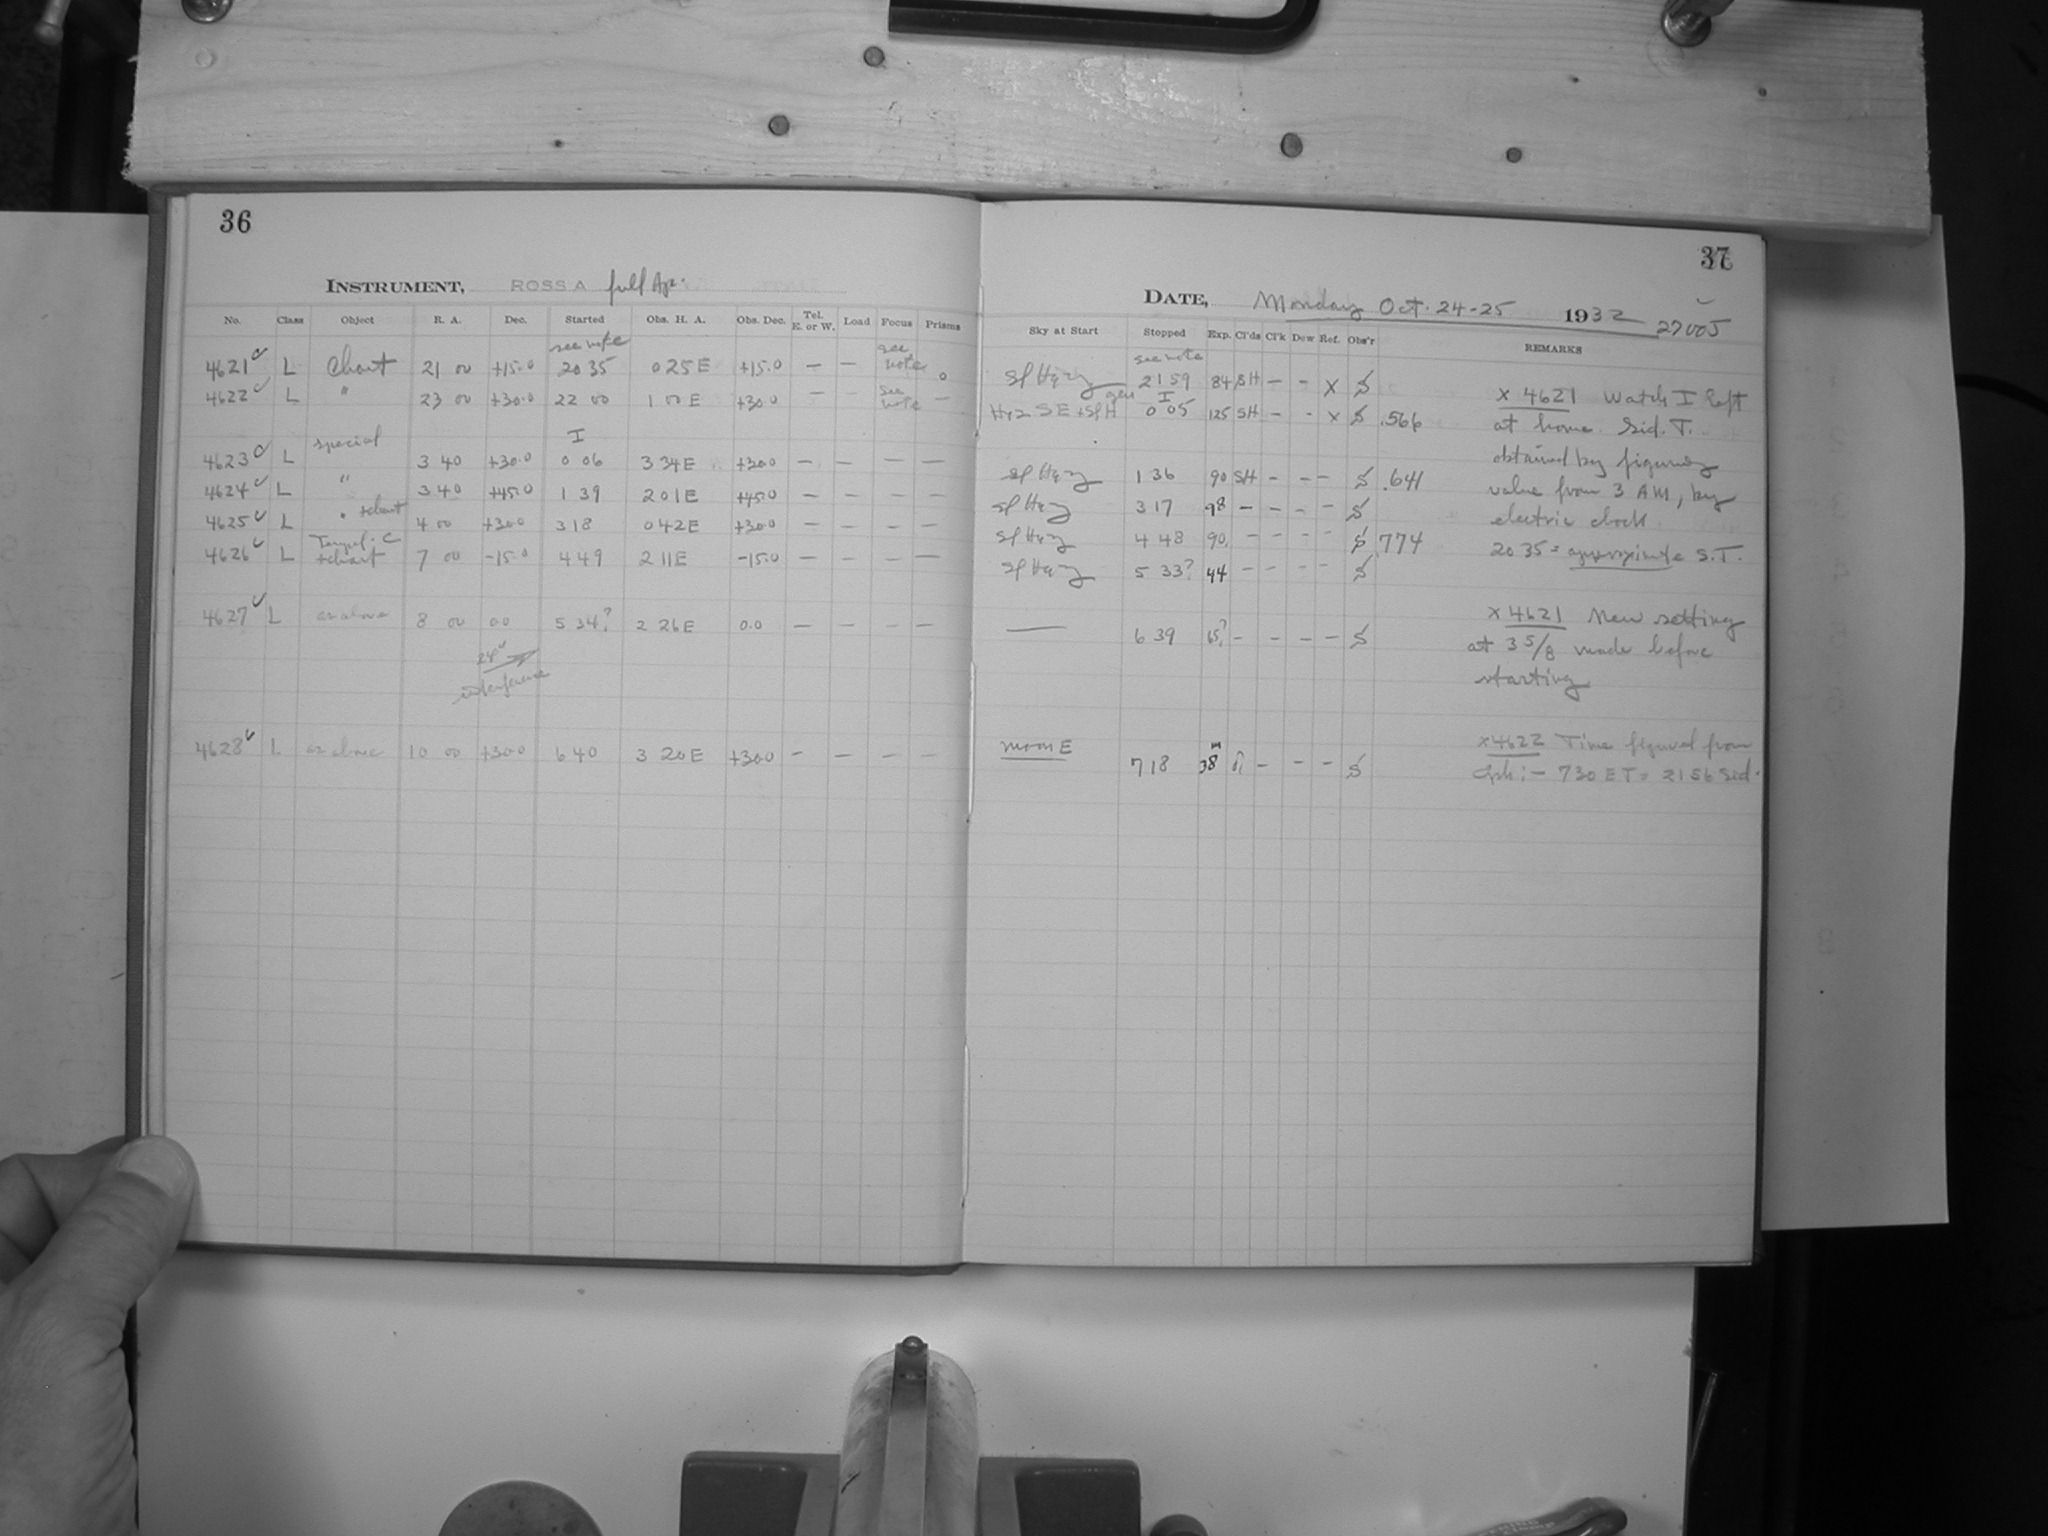 36
INSTRUMENT, ROSS A full Ap.
No. Class Object R. A. Dec. Started Obs. H. A. Obs. Dec. Tel. E. or W. Load Focus Prisms
see note see
4621 L Chart 21 00 +15.0 20 35 0 25 E +15.0 — — note 0
4622 L " 23 00 +30.0 22 00 1 00 E +30.0 — — see note —
special I
4623 L 3 40 +30.0 0 06 3 34 E +30.0 — — — —
4624 L " 3 40 +45.0 1 39 2 01 E +45.0 — — — —
4625 L " +chart 4 00 +30.0 3 18 0 42 E +30.0 — — — —
4626 L +chart 7 00 -15.0 4 49 2 11 E -15.0 — — — —
4627 L as above 8 00 0.0 5 34? 2 26 E 0.0 — — — —
interference
4628 L as above 10 00 +30.0 6 40 3 20 E +30.0 — — — —
37
DATE, Monday Oct. 24-25 1932
27005
Sky at Start Stopped Exp. Cl'ds Cl'k Dew Ref. Obs'r REMARKS
see note
Sl Hazy 21 59 84 SH — — X S
gen I
Haz SE + Sl H 0 05 125 SH — — X S .566
Sl Hazy 1 36 90 SH — — — S .641
Sl Hazy 3 17 98 — — — — S
Sl Hazy 4 48 90 — — — — S .774
Sl Hazy 5 33? 44 — — — — S
— 6 39 65? — — — — S
moon E 7 18 38 — — — S
X 4621 Watch I left
at home. Sid. T.
obtained by figuring
value from 3 AM, by
electric clock.
20 35 = approximate S.T.
X 4621 New setting
at 3 5/8 made before
starting
X 4622 Time figured from
:- 730 ET = 21 56 Sid.